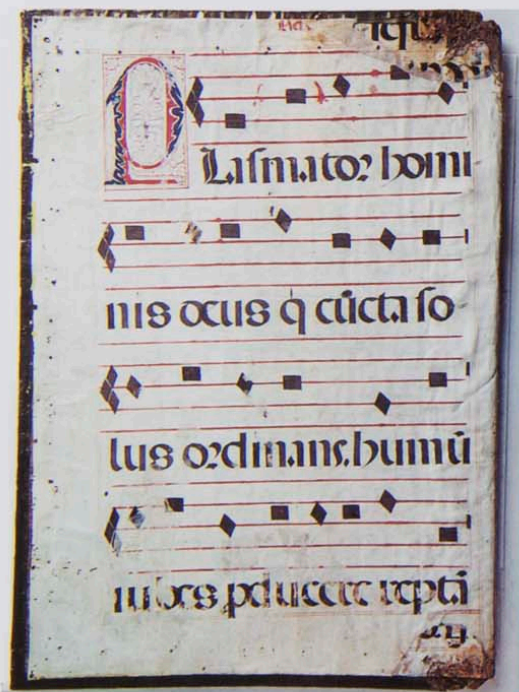 PLasmator homi
nis deus q̄ cūcta so
lus ordinans, humū
iubes pducere reptā